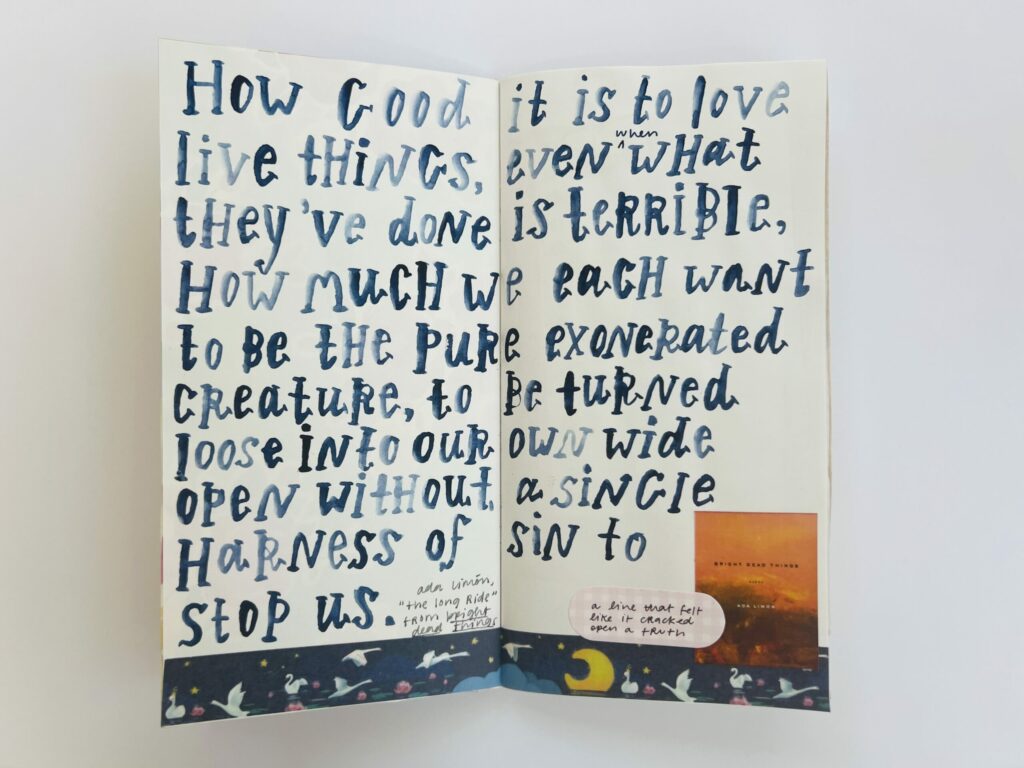 How Good it is to love
live things, even when what
they've done is terrible,
How much we each want
to be the pure exonerated
creature, to be turned
loose into our own wide
open without a single
Harness of sin to
stop us.
ada limón,
"the long Ride"
from bright
dead things
a line that felt
like it cracked
open a truth
BRIGHT DEAD THINGS
POEMS
ADA LIMÓN